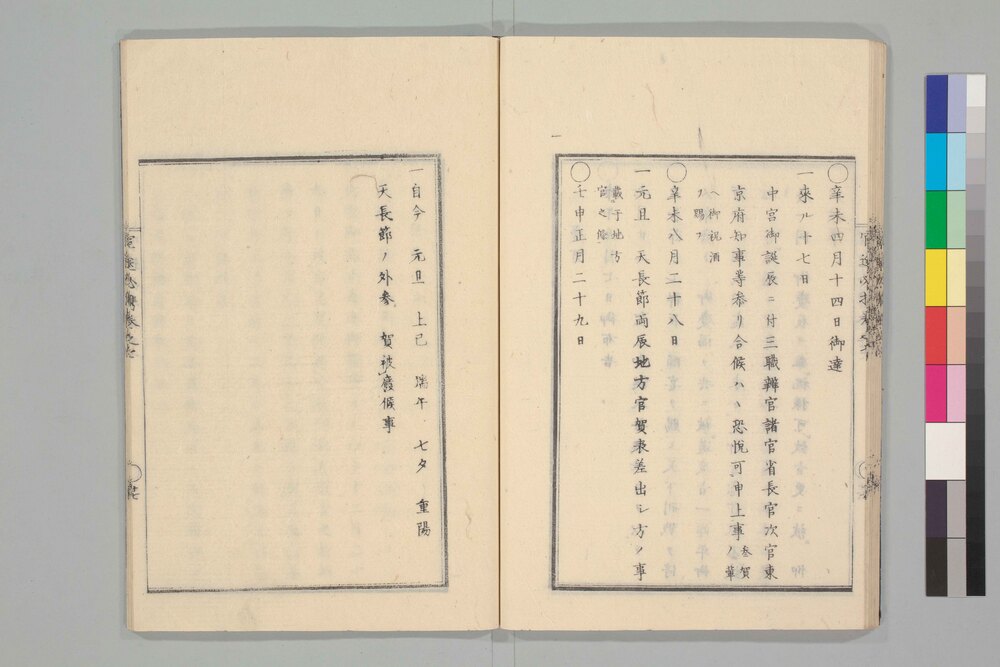 ○辛未四月十四日御達
一來ル十七日
中宮御誕辰ニ付三職辨官諸官省長官次官東
京府知事等参リ合候ハヽ恐悦可申上事 参賀ノ輩
ヘ御祝酒ヲ賜フ
○辛未八月二十八日
一元旦 天長節両辰地方官賀表差出シ方ノ事
載于地方官之條
○壬申正月二十九日
一自今 元旦 上巳 端午 七夕 重陽
天長節ノ外参 賀被廢候事